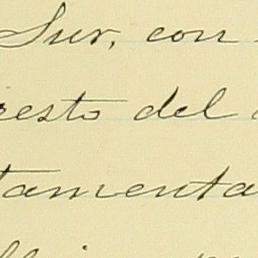 Sur, con
esto del
tamenta